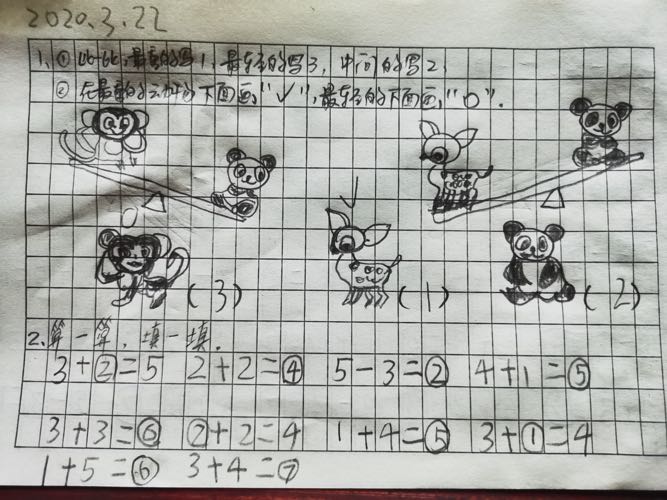 2020.3.22
1、① 比一比,最重的写1、最轻的写3,中间的写2.
② 在最重的动物的下面画“✓”,最轻的下面画“O”.
O ✓
(3) (1) (2)
2.算一算,填一填.
3+②=5 2+2=④ 5-3=② 4+1=⑤
3+3=⑥ ②+2=4 1+4=⑤ 3+①=4
1+5=⑥ 3+4=⑦